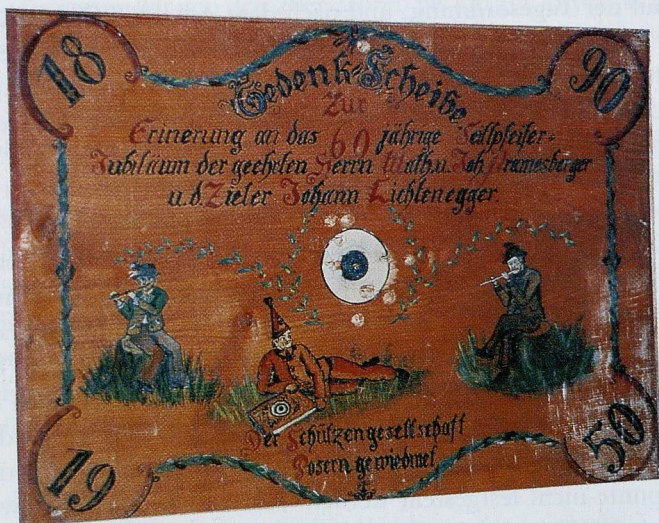 18 90
Gedenk-Scheibe
Zur
Erinerung an das 60 jährige Seitlpfeifer-
Jubiläum der geehrten Herrn Math. u. Joh.
u. d. Zieler Johann Lichtenegger.
Der Schützengesellschaft
Posern gewiedmet
19 50